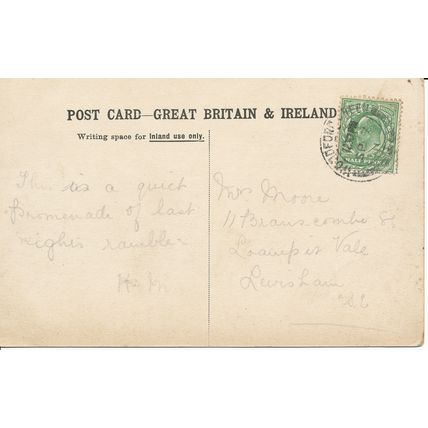 POST CARD—GREAT BRITAIN & IRELAND
Writing space for Inland use only.
This is a quiet
promenade of last
nights ramble-
H. M
Mrs Moore
11 Branscombe St
Loampit Vale
Lewisham
SE
HALF